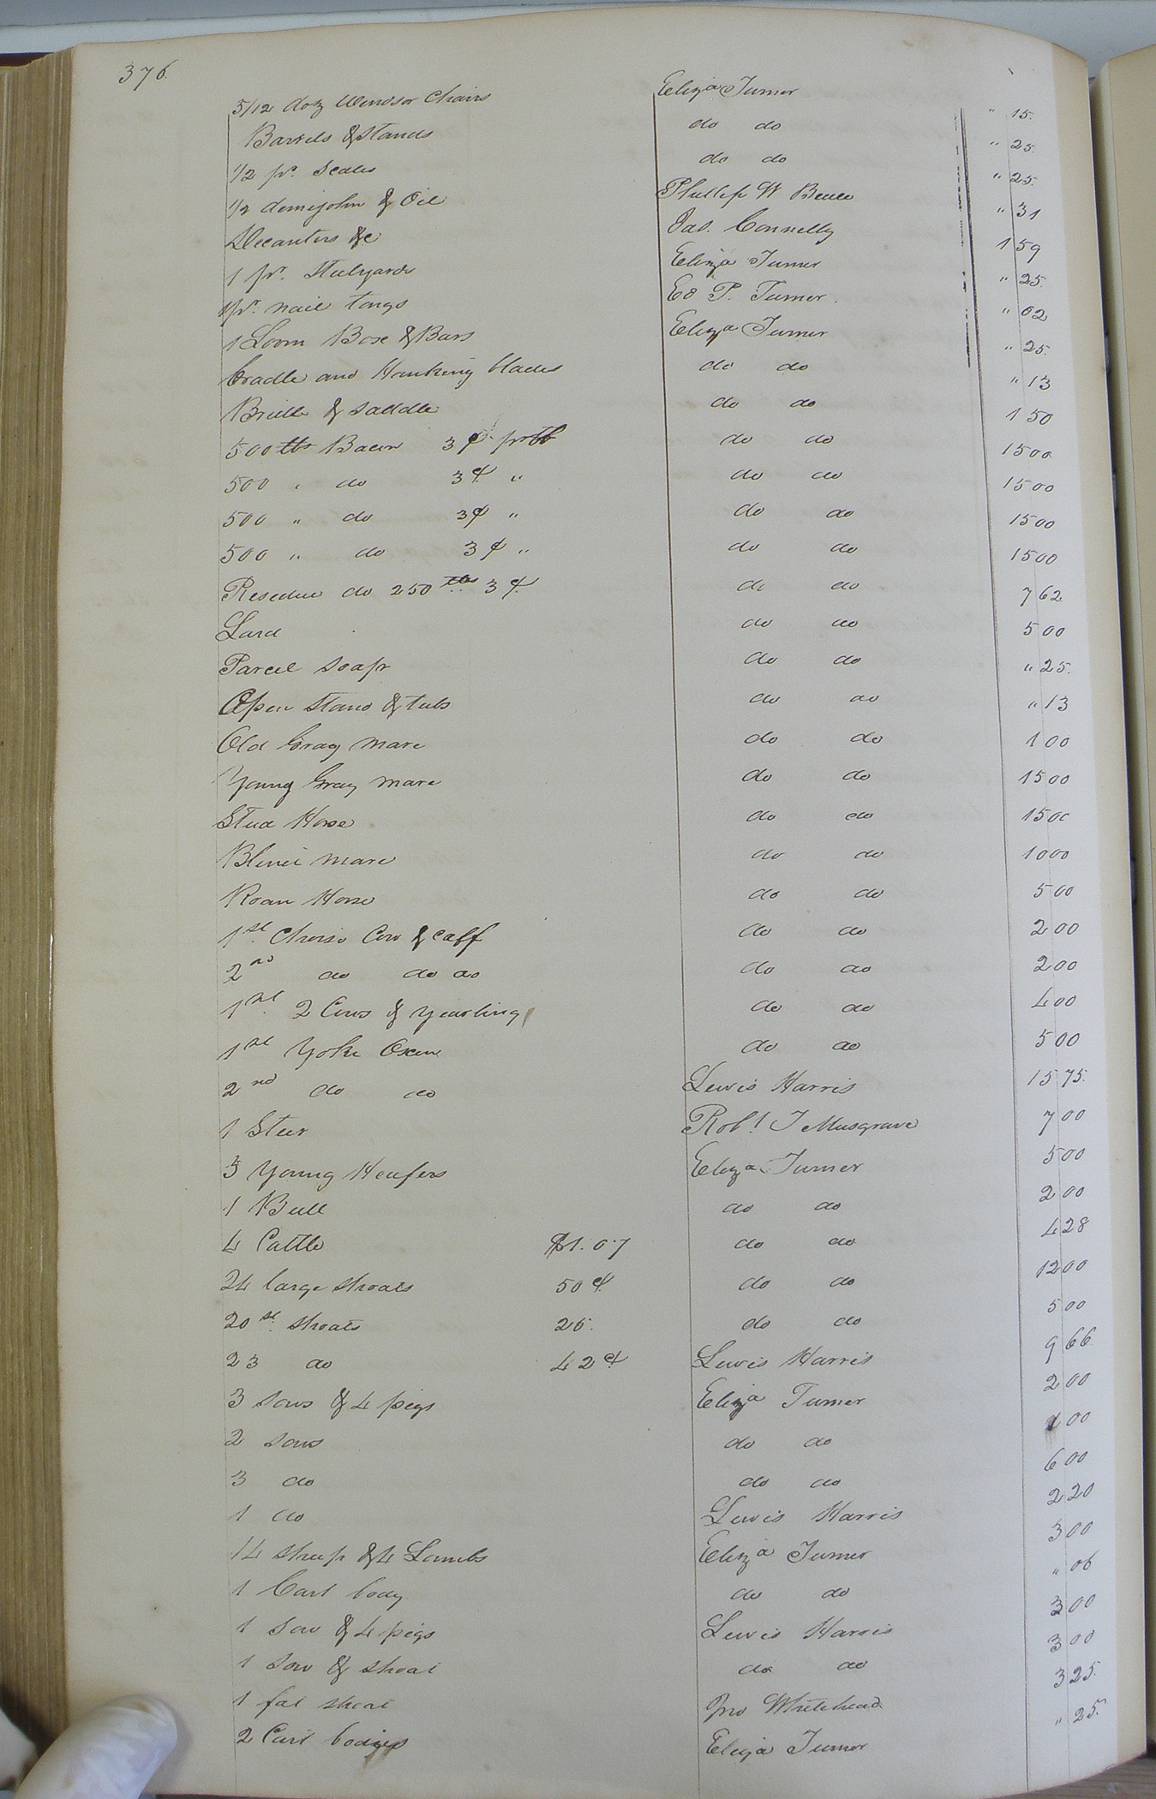 376.
5/12 doz Windsor Chairs Eliza Turner " 15.
Barrels & Stands do do " 25
1/2 pr. Scales do do " 25.
1/2 demijohn & Oil Phillip W " 31
Decanters &c Jas. Connelly 1 59
1 pr. Stilyards Eliza Turner " 25.
1 pr. nail tongs Ed P. Turner " 02
1 Loom Box & Bars Eliza Turner " 25.
Cradle and Hanking blades do do " 13
Bridle & Saddle do do 1 50
500 lbs Bacon 3¢ pr lb do do 15 00
500 " do 3¢ " do do 15 00
500 " do 3¢ " do do 15 00
500 " do 3¢ " do do 15 00
Residue do 250 lbs 3¢ do do 7 62
Lard do do 5 00
Parcel Soap do do " 25.
Open Stand & tubs do do " 13
Old Gray mare do do 1 00
Young Gray mare do do 15 00
Stud Horse do do 15 00
Blind mare do do 10 00
Roan Horse do do 5 00
1st Choise Cow & Calf do do 2 00
2nd do do do do do 2 00
1st 2 Cows & yearling do do 4 00
1st Yoke Oxen do do 5 00
2nd do do Lewis Harris 15 75.
1 Steer Robt. T Musgrave 7 00
3 Young Heafers Eliza Turner 5 00
1 Bull do do 2 00
4 Cattle $1.07 do do 4 28
24 large Shoats 50¢ do do 12 00
20 st. Shoats 25. do do 5 00
23 do 42¢ Lewis Harris 9 66
3 Sows & 4 pigs Eliza Turner 2 00
2 Sows do do 1 00
3 do do do 6 00
1 do Lewis Harris 2 20
14 Sheep & 4 Lambs Eliza Turner 3 00
1 Cart body do do " 06
1 Sow & 4 pigs Lewis Harris 3 00
1 Sow & Shoat do do 3 00
1 fat Shoat Jno Whitehead 3 25.
2 Cart bodies Eliza Turner " 25.